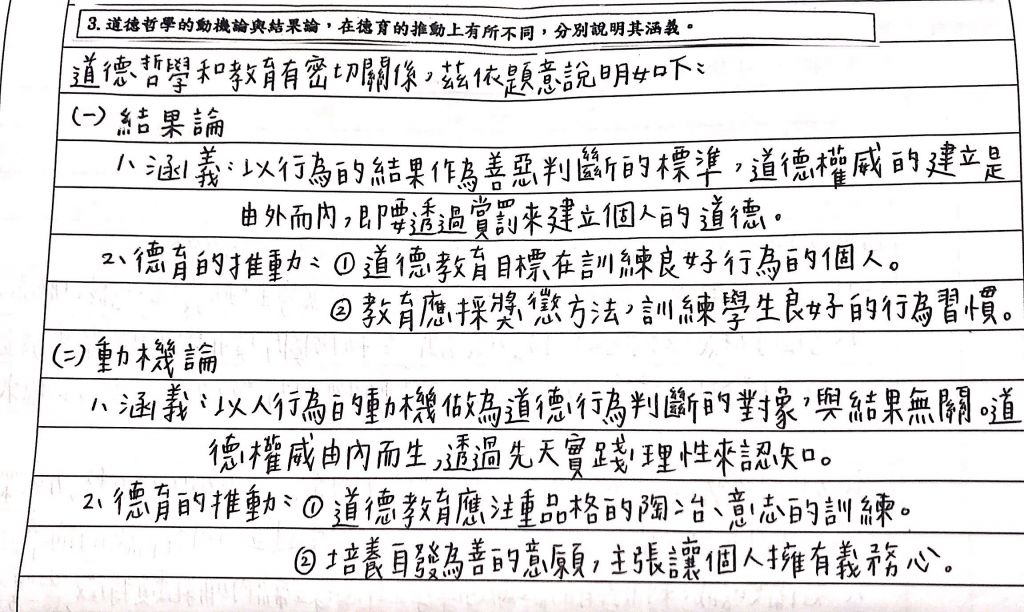 3. 道德哲學的動機論與結果論，在德育的推動上有所不同，分別說明其涵義。
道德哲學和教育有密切關係，茲依題意說明如下：
(一) 結果論
1、涵義：以行為的結果作為善惡判斷的標準，道德權威的建立是
由外而內，即要透過賞罰來建立個人的道德。
2、德育的推動：① 道德教育目標在訓練良好行為的個人。
② 教育應採獎懲方法，訓練學生良好的行為習慣。
(二) 動機論
1、涵義：以人行為的動機做為道德行為判斷的對象，與結果無關。道
德權威由內而生，透過先天實踐理性來認知。
2、德育的推動：① 道德教育應注重品格的陶冶、意志的訓練。
② 培養自發為善的意願，主張讓個人擁有義務心。